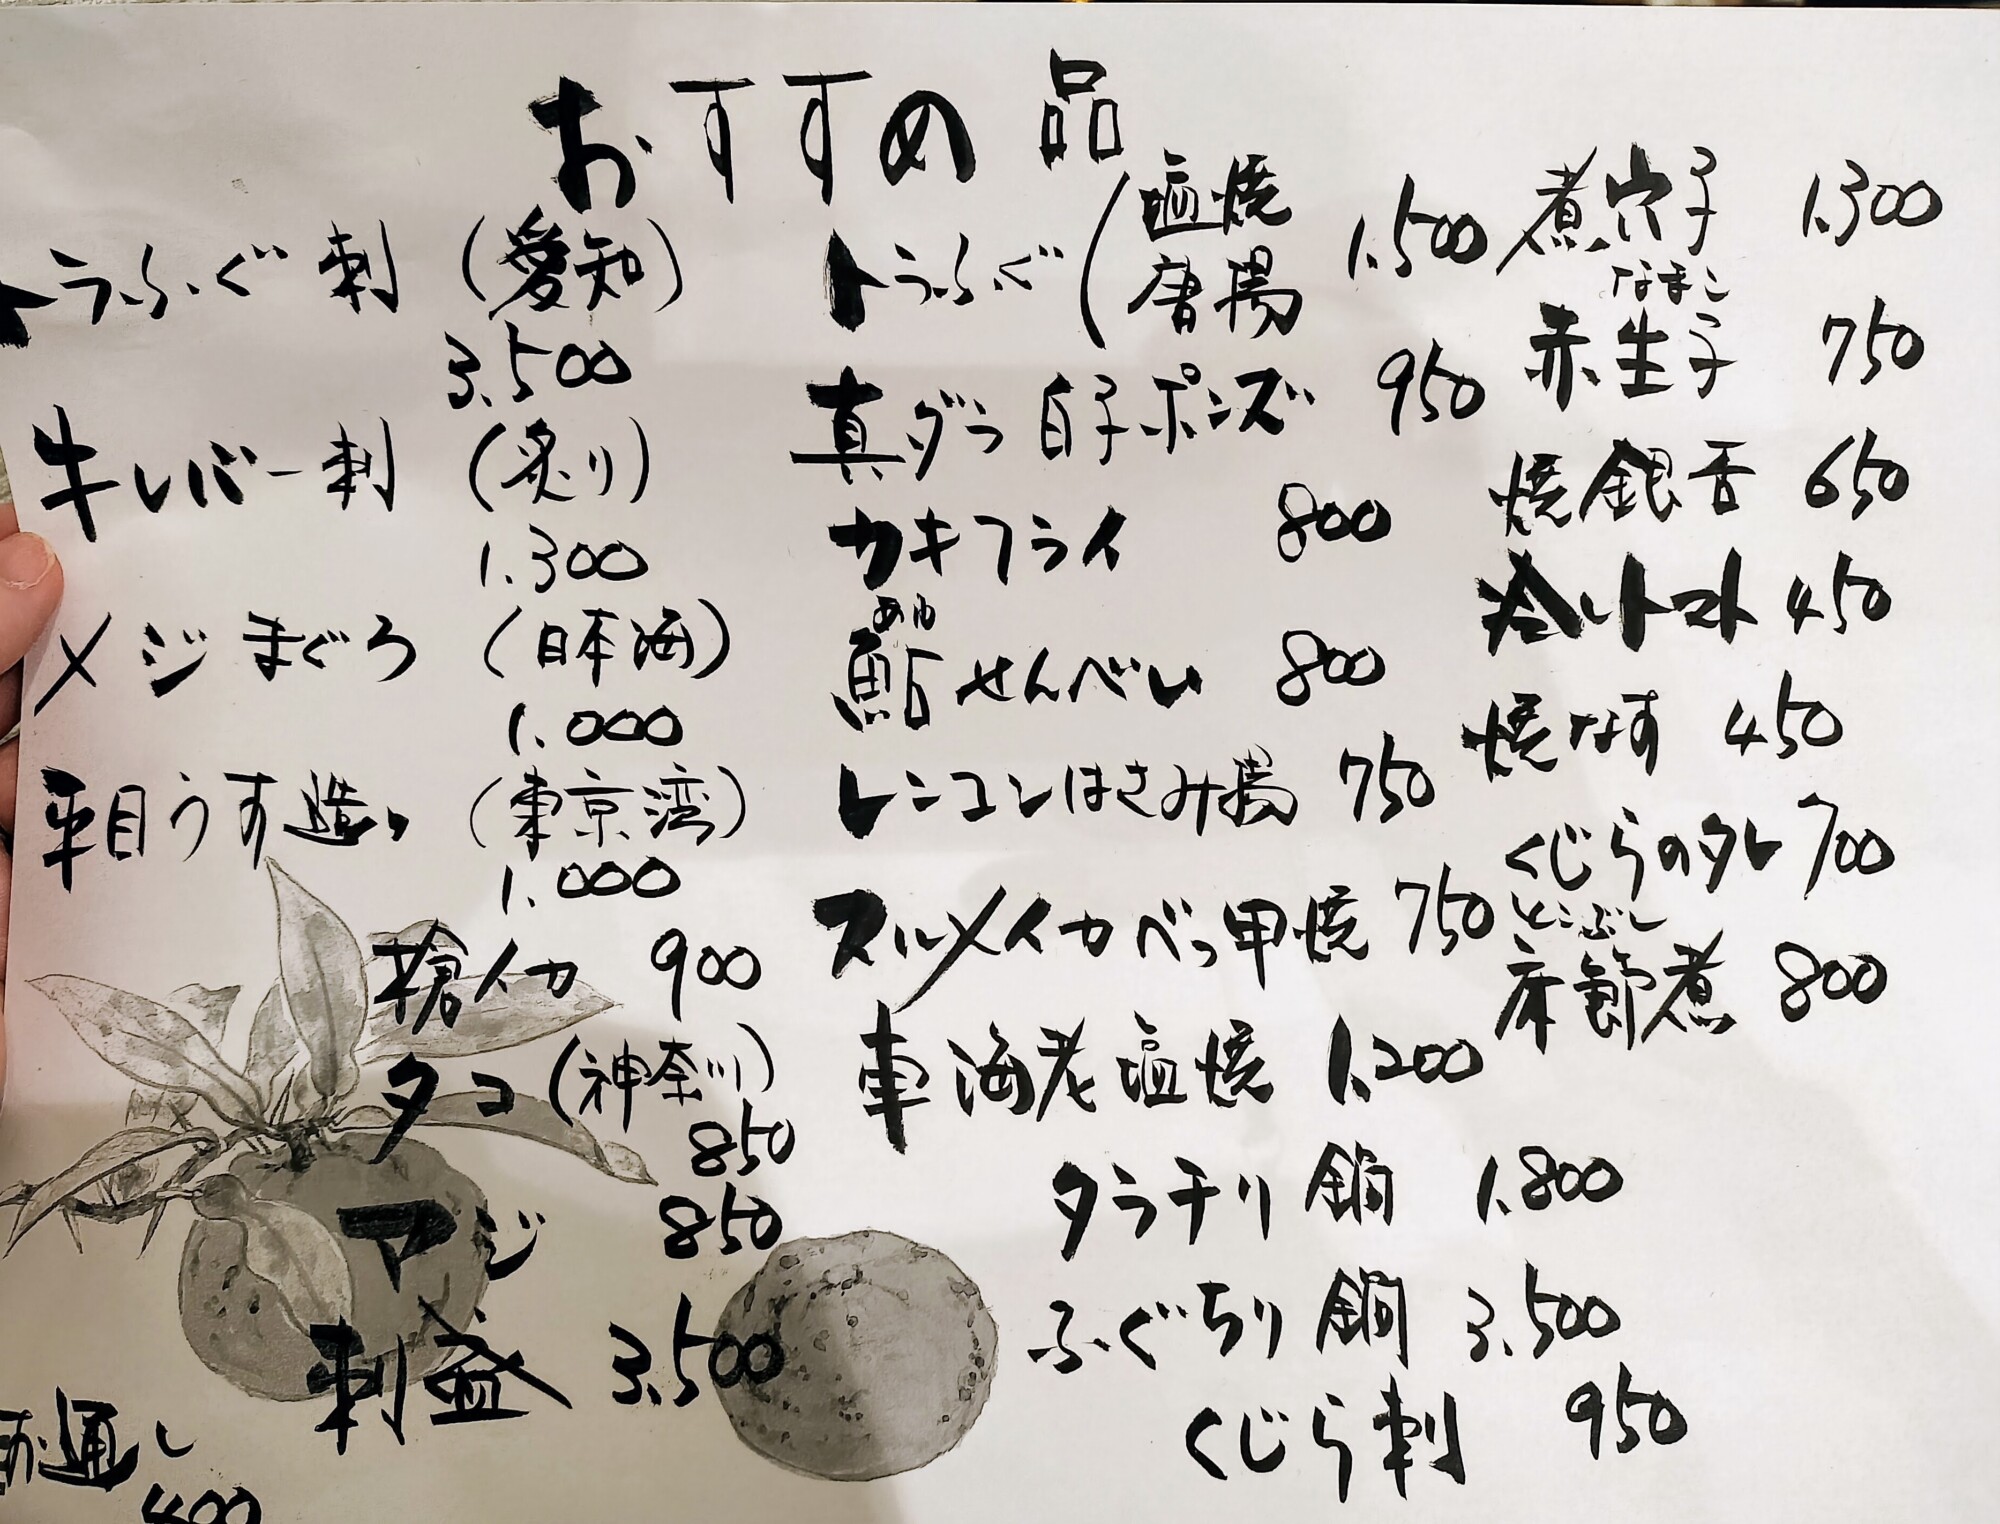 おすすめ品
トラふぐ刺 (愛知)
3.500
牛レバー刺 (炙り)
1.300
メジまぐろ (日本海)
1.000
平目うす造り (東京湾)
1.000
槍イカ 900
タコ (神奈川)
850
アジ 850
刺盛 3.500
お通し
400
トラふぐ (塩焼
唐揚 1.500
真ダラ白子ポンズ 950
カキフライ 800
あゆ
鮎せんべい 800
レンコンはさみ揚 750
スルメイカべっ甲焼 750
車海老塩焼 1.200
タラチリ鍋 1.800
ふぐちり鍋 3.500
くじら刺 950
煮穴子 1.300
なまこ
赤生子 750
焼銀杏 650
冷しトマト 450
焼なす 450
くじらのタレ 700
とこぶし
床節煮 800